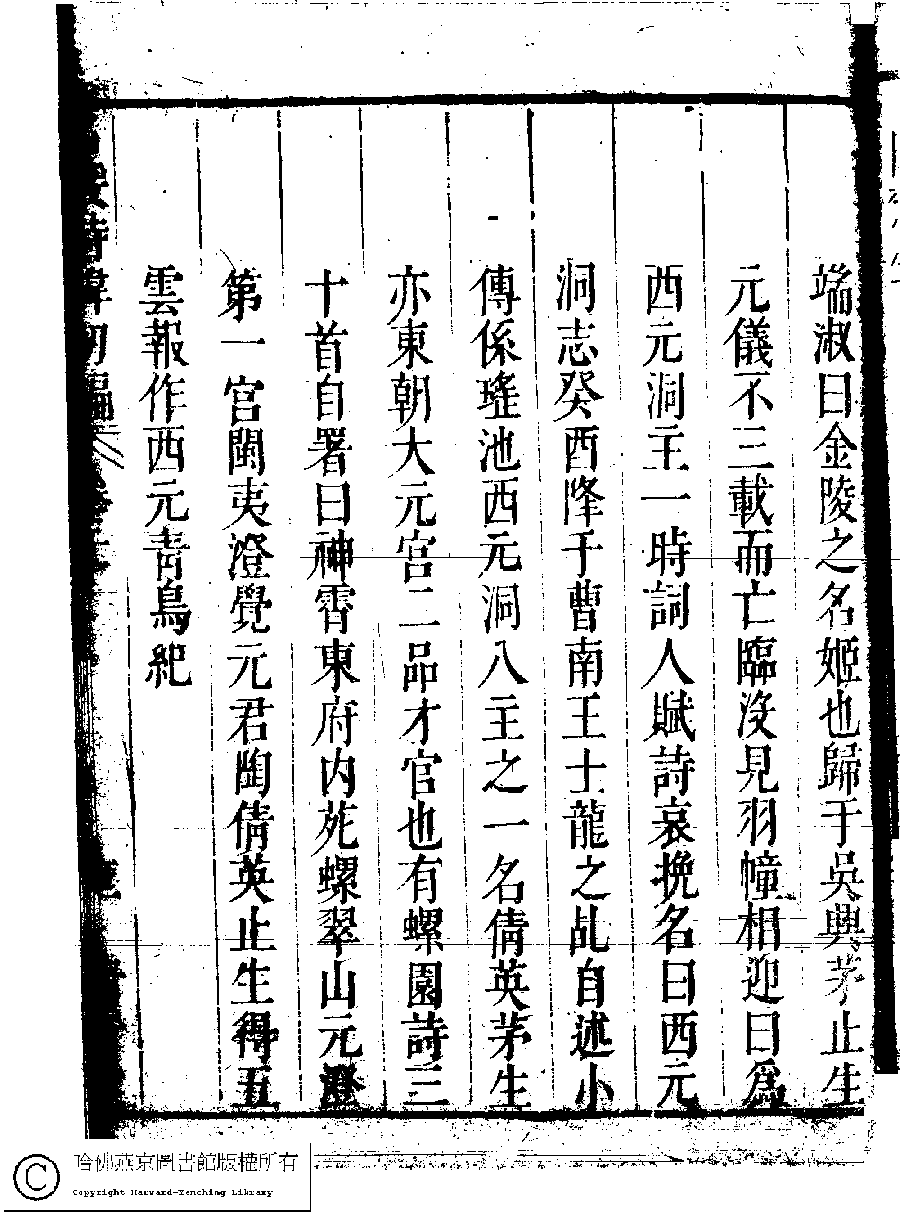 端淑曰金陵之名姬也歸于吳興茅止生
元儀不三載而亡臨沒見羽幢相迎曰為
西元洞主一時詞人賦詩哀挽名曰西元
洞志癸酉降于曹南王士龍之乩自述小
傳係瑤池西元洞八主之一名倩英茅生
亦東朝大元宮二品才官也有螺園詩三
十首自署曰神霄東府內苑螺翠山元澄
第一宮閩夷澄覺元君陶倩英止生得五
雲報作西元青鳥紀
詩緯初編
哈佛燕京圖書館版權所有
Copyright Harvard-Yenching Library